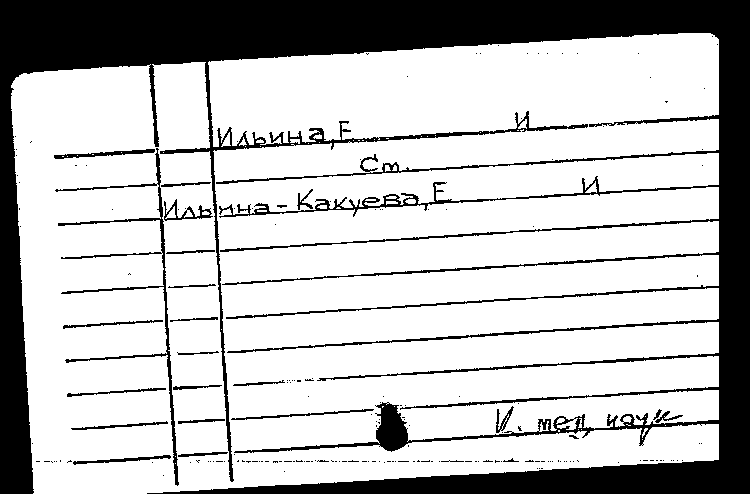 Ильина, Е И
Ст.
Ильина-Какуева, Е И
К. мед. наук